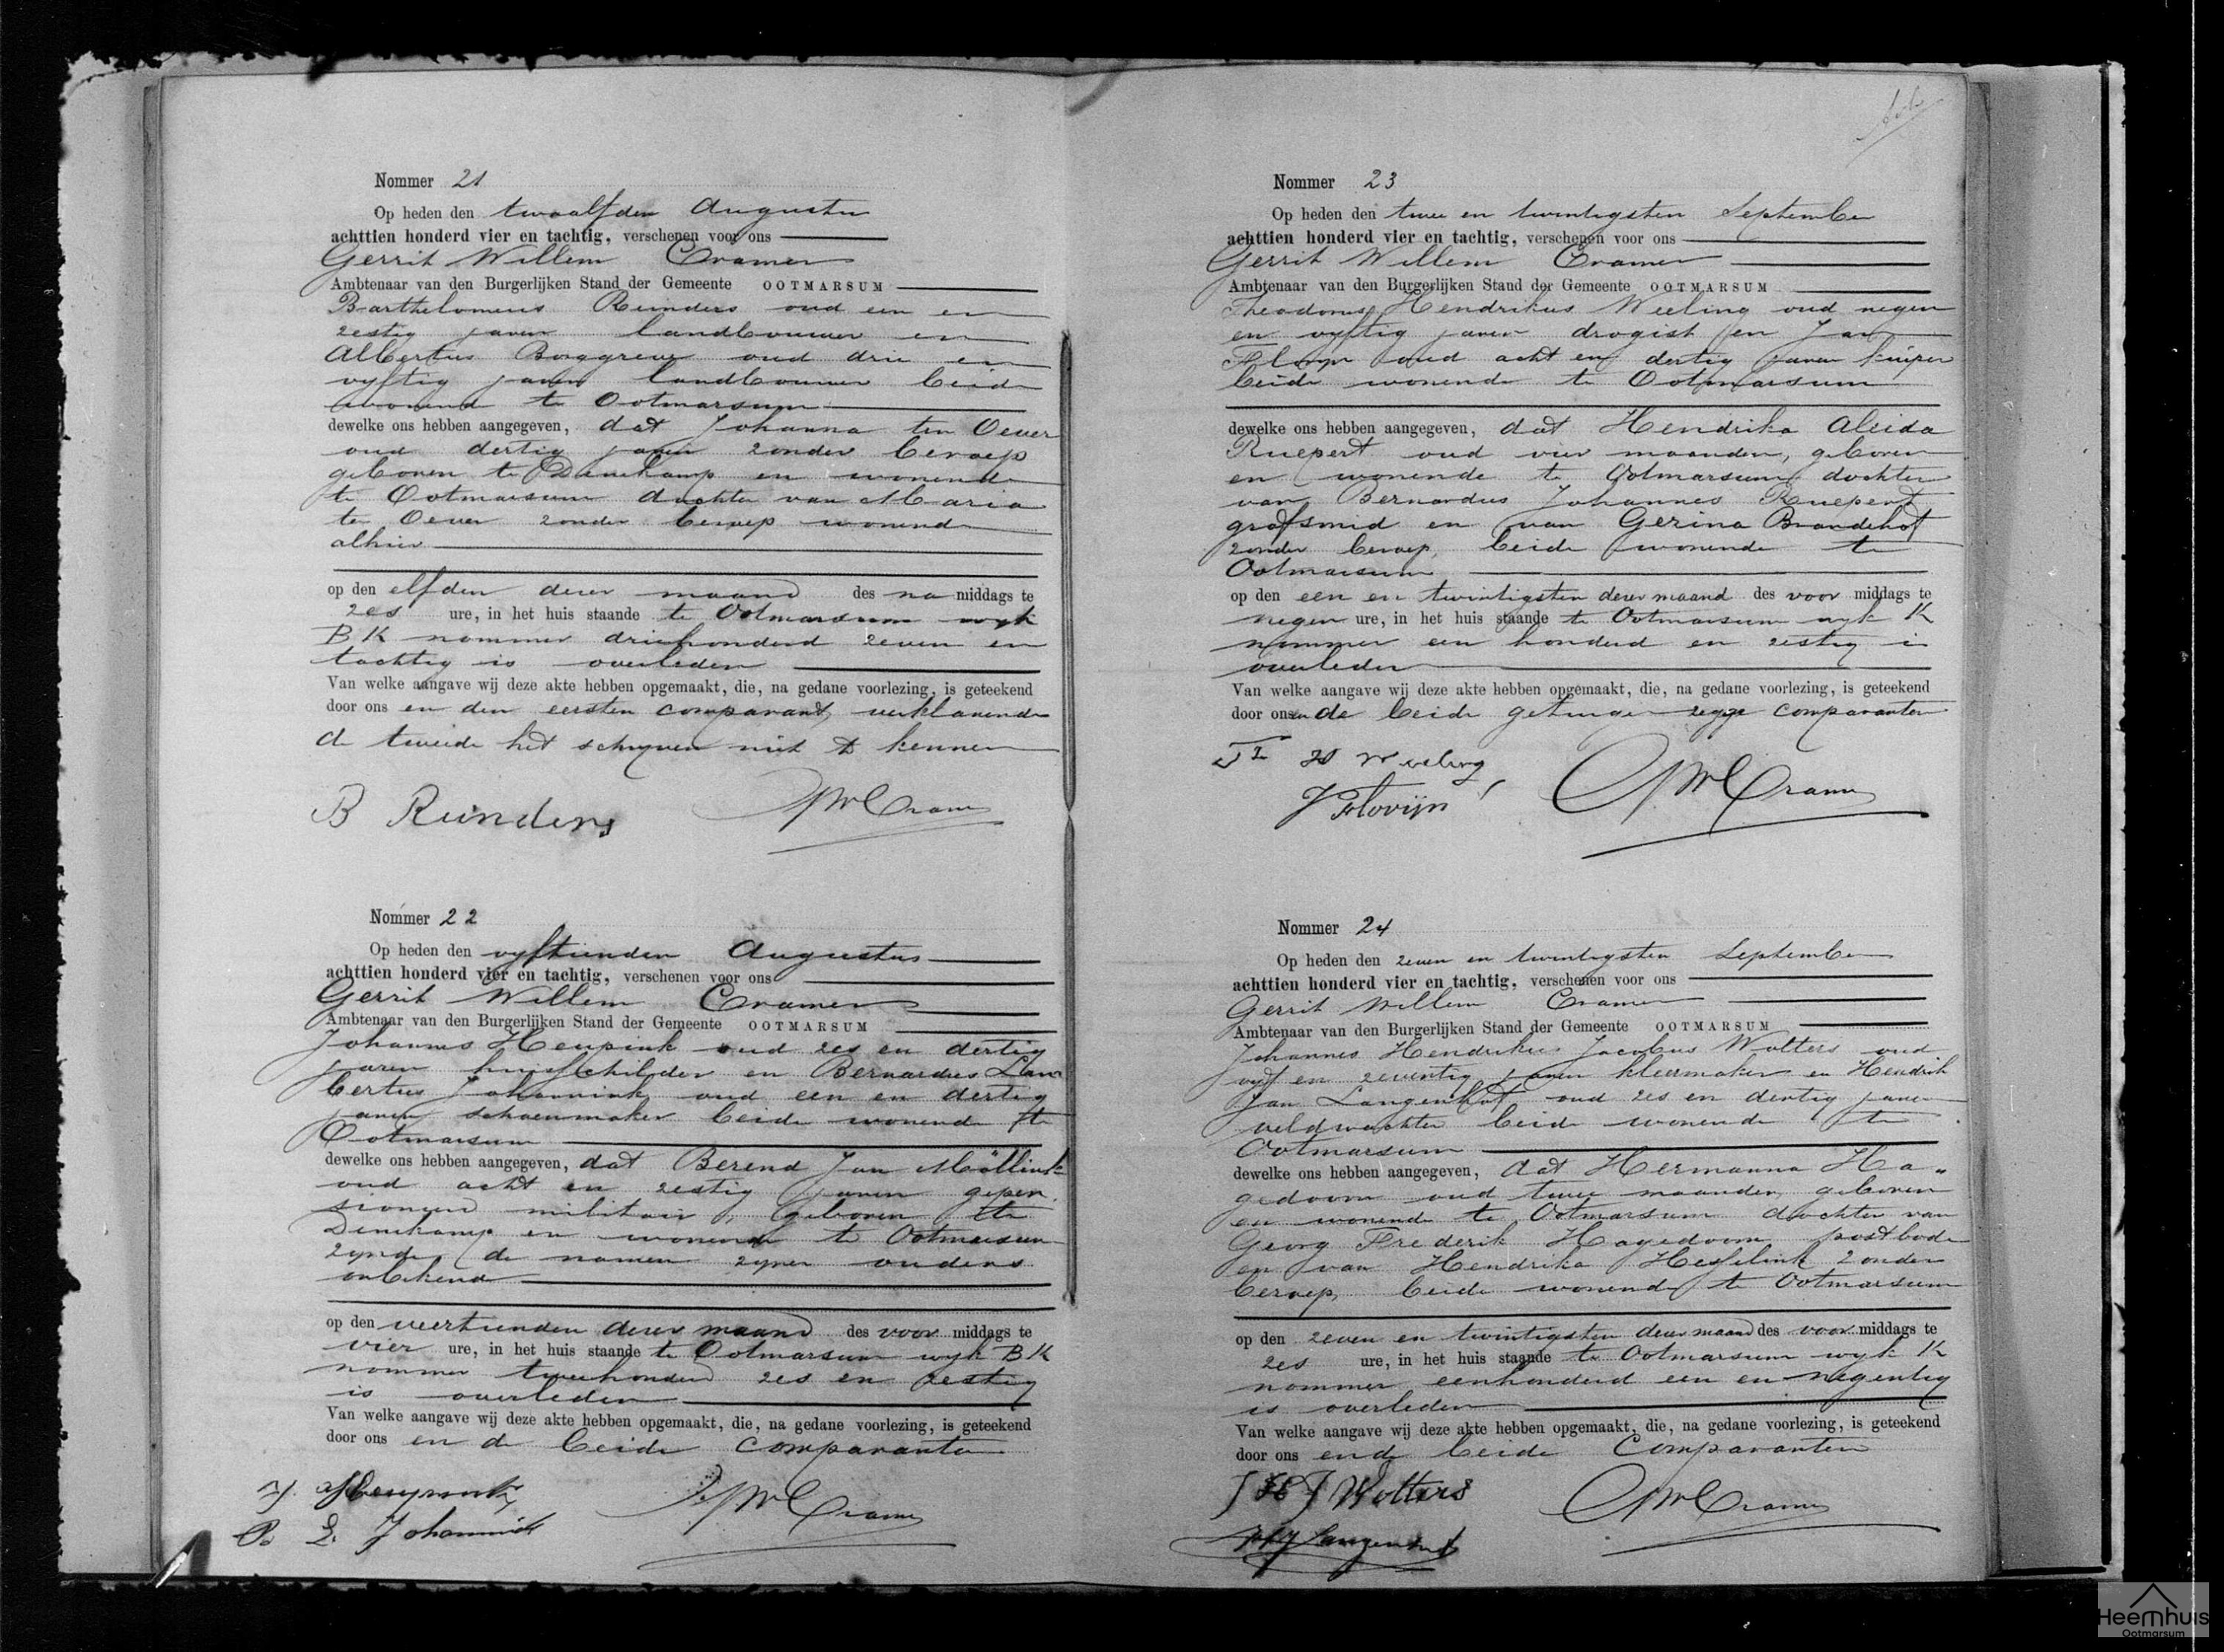 Nommer 21
Op heden den twaalfden Augustus
achttien honderd vier en tachtig, verschenen voor ons
Gerrit Willem Cramer
Ambtenaar van den Burgerlijken Stand der Gemeente OOTMARSUM
Bartholomeus Reinders oud een en
zestig jaren landbouwer en
Albertus Borggreve oud drie en
vyftig jaren landbouwer beide
wonende te Ootmarsum
dewelke ons hebben aangegeven, dat Johanna ten Oever
oud dertig jaren zonder beroep
geboren te Denekamp en wonende
te Ootmarsum dochter van Maria
ten Oever zonder beroep wonende
alhier
op den elfden dezer maand des na middags te
zes ure, in het huis staande te Ootmarsum wyk
BK nommer driehonderd zeven en
tachtig is overleden
Van welke aangave wij deze akte hebben opgemaakt, die, na gedane voorlezing, is geteekend
door ons en den eersten comparant, verklarende
de tweede het schryven niet te kennen
B Reinders GWCramer
Nommer 22
Op heden den vyftienden Augustus
achttien honderd vier en tachtig, verschenen voor ons
Gerrit Willem Cramer
Ambtenaar van den Burgerlijken Stand der Gemeente OOTMARSUM
Johannes Heupink oud zes en dertig
jaren huisschilder en Bernardus Lam
bertus Johannink oud een en dertig
jaren schoenmaker beide wonende te
Ootmarsum
dewelke ons hebben aangegeven, dat Berend Jan Möllink
oud acht en zestig jaren gepen
sioneerd militair, geboren te
Denekamp en wonende te Ootmarsum
zynde de namen zyner ouders
onbekend
op den veertienden dezer maand des voor middags te
vier ure, in het huis staande te Ootmarsum wyk BK
nommer tweehonderd zes en zestig
is overleden
Van welke aangave wij deze akte hebben opgemaakt, die, na gedane voorlezing, is geteekend
door ons en de beide comparanten
J. Heupink GWCramer
B. L. Johannink
Nommer 23
Op heden den twee en twintigsten September
achttien honderd vier en tachtig, verschenen voor ons
Gerrit Willem Cramer
Ambtenaar van den Burgerlijken Stand der Gemeente OOTMARSUM
Theodorus Hendrikus Weeling oud negen
en vyftig jaren drogist en Jan
oud acht en dertig jaren kuiper
beide wonende te Ootmarsum
dewelke ons hebben aangegeven, dat Hendrika Aleida
Ruepert oud vier maanden, geboren
en wonende te Ootmarsum dochter
van Bernardus Johannes Ruepert
grofsmid en van Gerina Brandehof
zonder beroep, beide wonende te
Ootmarsum
op den een en twintigsten dezer maand des voor middags te
negen ure, in het huis staande te Ootmarsum wyk K
nommer een honderd en zestig is
overleden
Van welke aangave wij deze akte hebben opgemaakt, die, na gedane voorlezing, is geteekend
door ons en de beide getuigen zegge comparanten
Th H Weeling
J Flovijn GWCramer
Nommer 24
Op heden den zeven en twintigsten September
achttien honderd vier en tachtig, verschenen voor ons
Gerrit Willem Cramer
Ambtenaar van den Burgerlijken Stand der Gemeente OOTMARSUM
Johannes Hendrikus Jacobus Wolters oud
vyf en zeventig jaren kleermaker en Hendrik
Jan Langenhof oud zes en dertig jaren
veldwachter beide wonende te
Ootmarsum
dewelke ons hebben aangegeven, dat Hermanna Ha„
gedoorn oud twee maanden, geboren
en wonende te Ootmarsum dochter van
Georg Frederik Hagedoorn, postbode
en van Hendrika Hesselink zonder
beroep, beide wonende te Ootmarsum
op den zeven en twintigsten dezer maand des voor middags te
zes ure, in het huis staande te Ootmarsum wyk K
nommer eenhonderd een en negentig
is overleden
Van welke aangave wij deze akte hebben opgemaakt, die, na gedane voorlezing, is geteekend
door ons en de beide Comparanten
J H J Wolters GWCramer
HJ Langenhof
Heemhuis
Ootmarsum